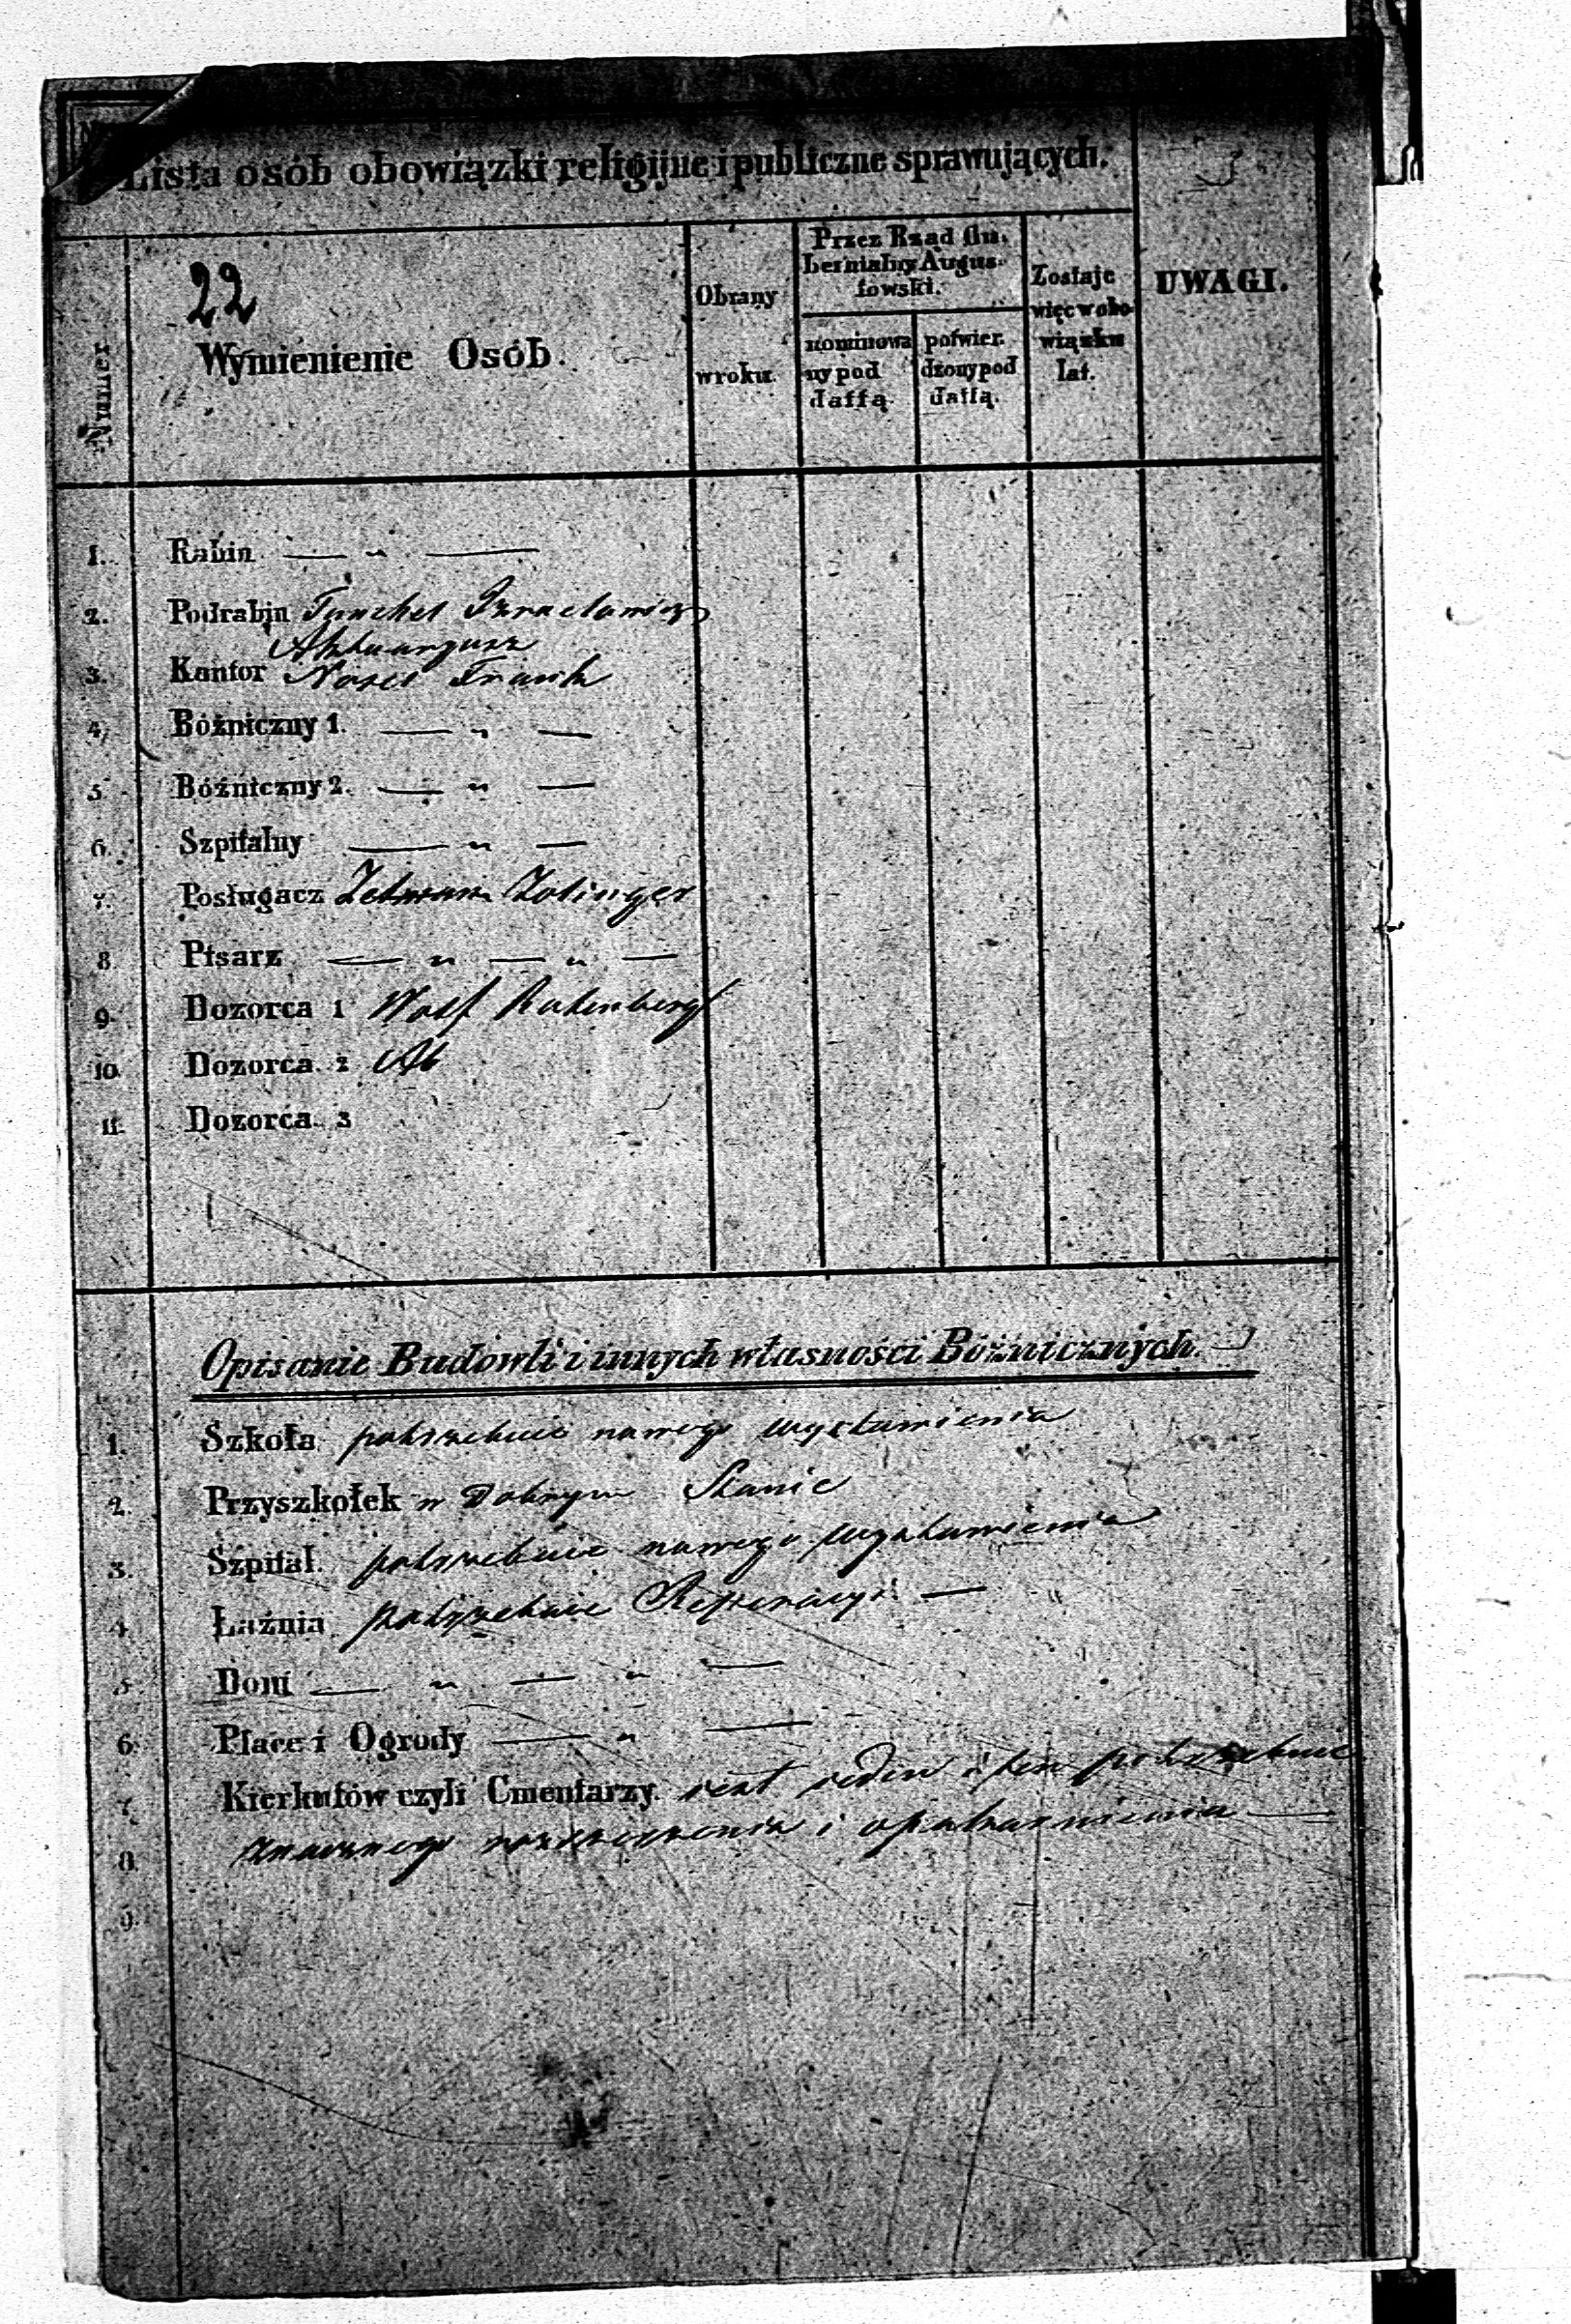 Lista osób obowiązki religijne i publiczne sprawujących.
Numer
22
Wymienienie Osób.
Obrany w roku.
Przez Rząd Gubernialny Augustowski.
nominowany pod dattą
potwierdzony pod dattą.
Zostaje więc w obowiązku lat.
UWAGI.
1. Rabin — „ —
2. Podrabin Izraelowicz
3. Kantor Frank
4. Bóźniczny 1. — „ —
5. Bóźniczny 2. — „ —
6. Szpitalny — „ —
7. Posługacz Zolinger
8 Pisarz — „ — „ —
9. Dozorca 1 Wolf Rutenberg
10. Dozorca 2 Ab
11. Dozorca 3
Opisanie Budowli i innych własności Bóźnicznych.
1. Szkoła potrzebuie nowego wystawienia
2. Przyszkołek w Dobrym Stanie
3. Szpital. potrzebuie nowego wystawienia
4 Łaźnia potrzebuie Reperacyi —
5 Dom — „ — „ —
6. Place i Ogrody — „ —
7. Kierkutów czyli Cmentarzy iest ieden i ten potrzebuie
8. znacznego i opatrznienia —
9.